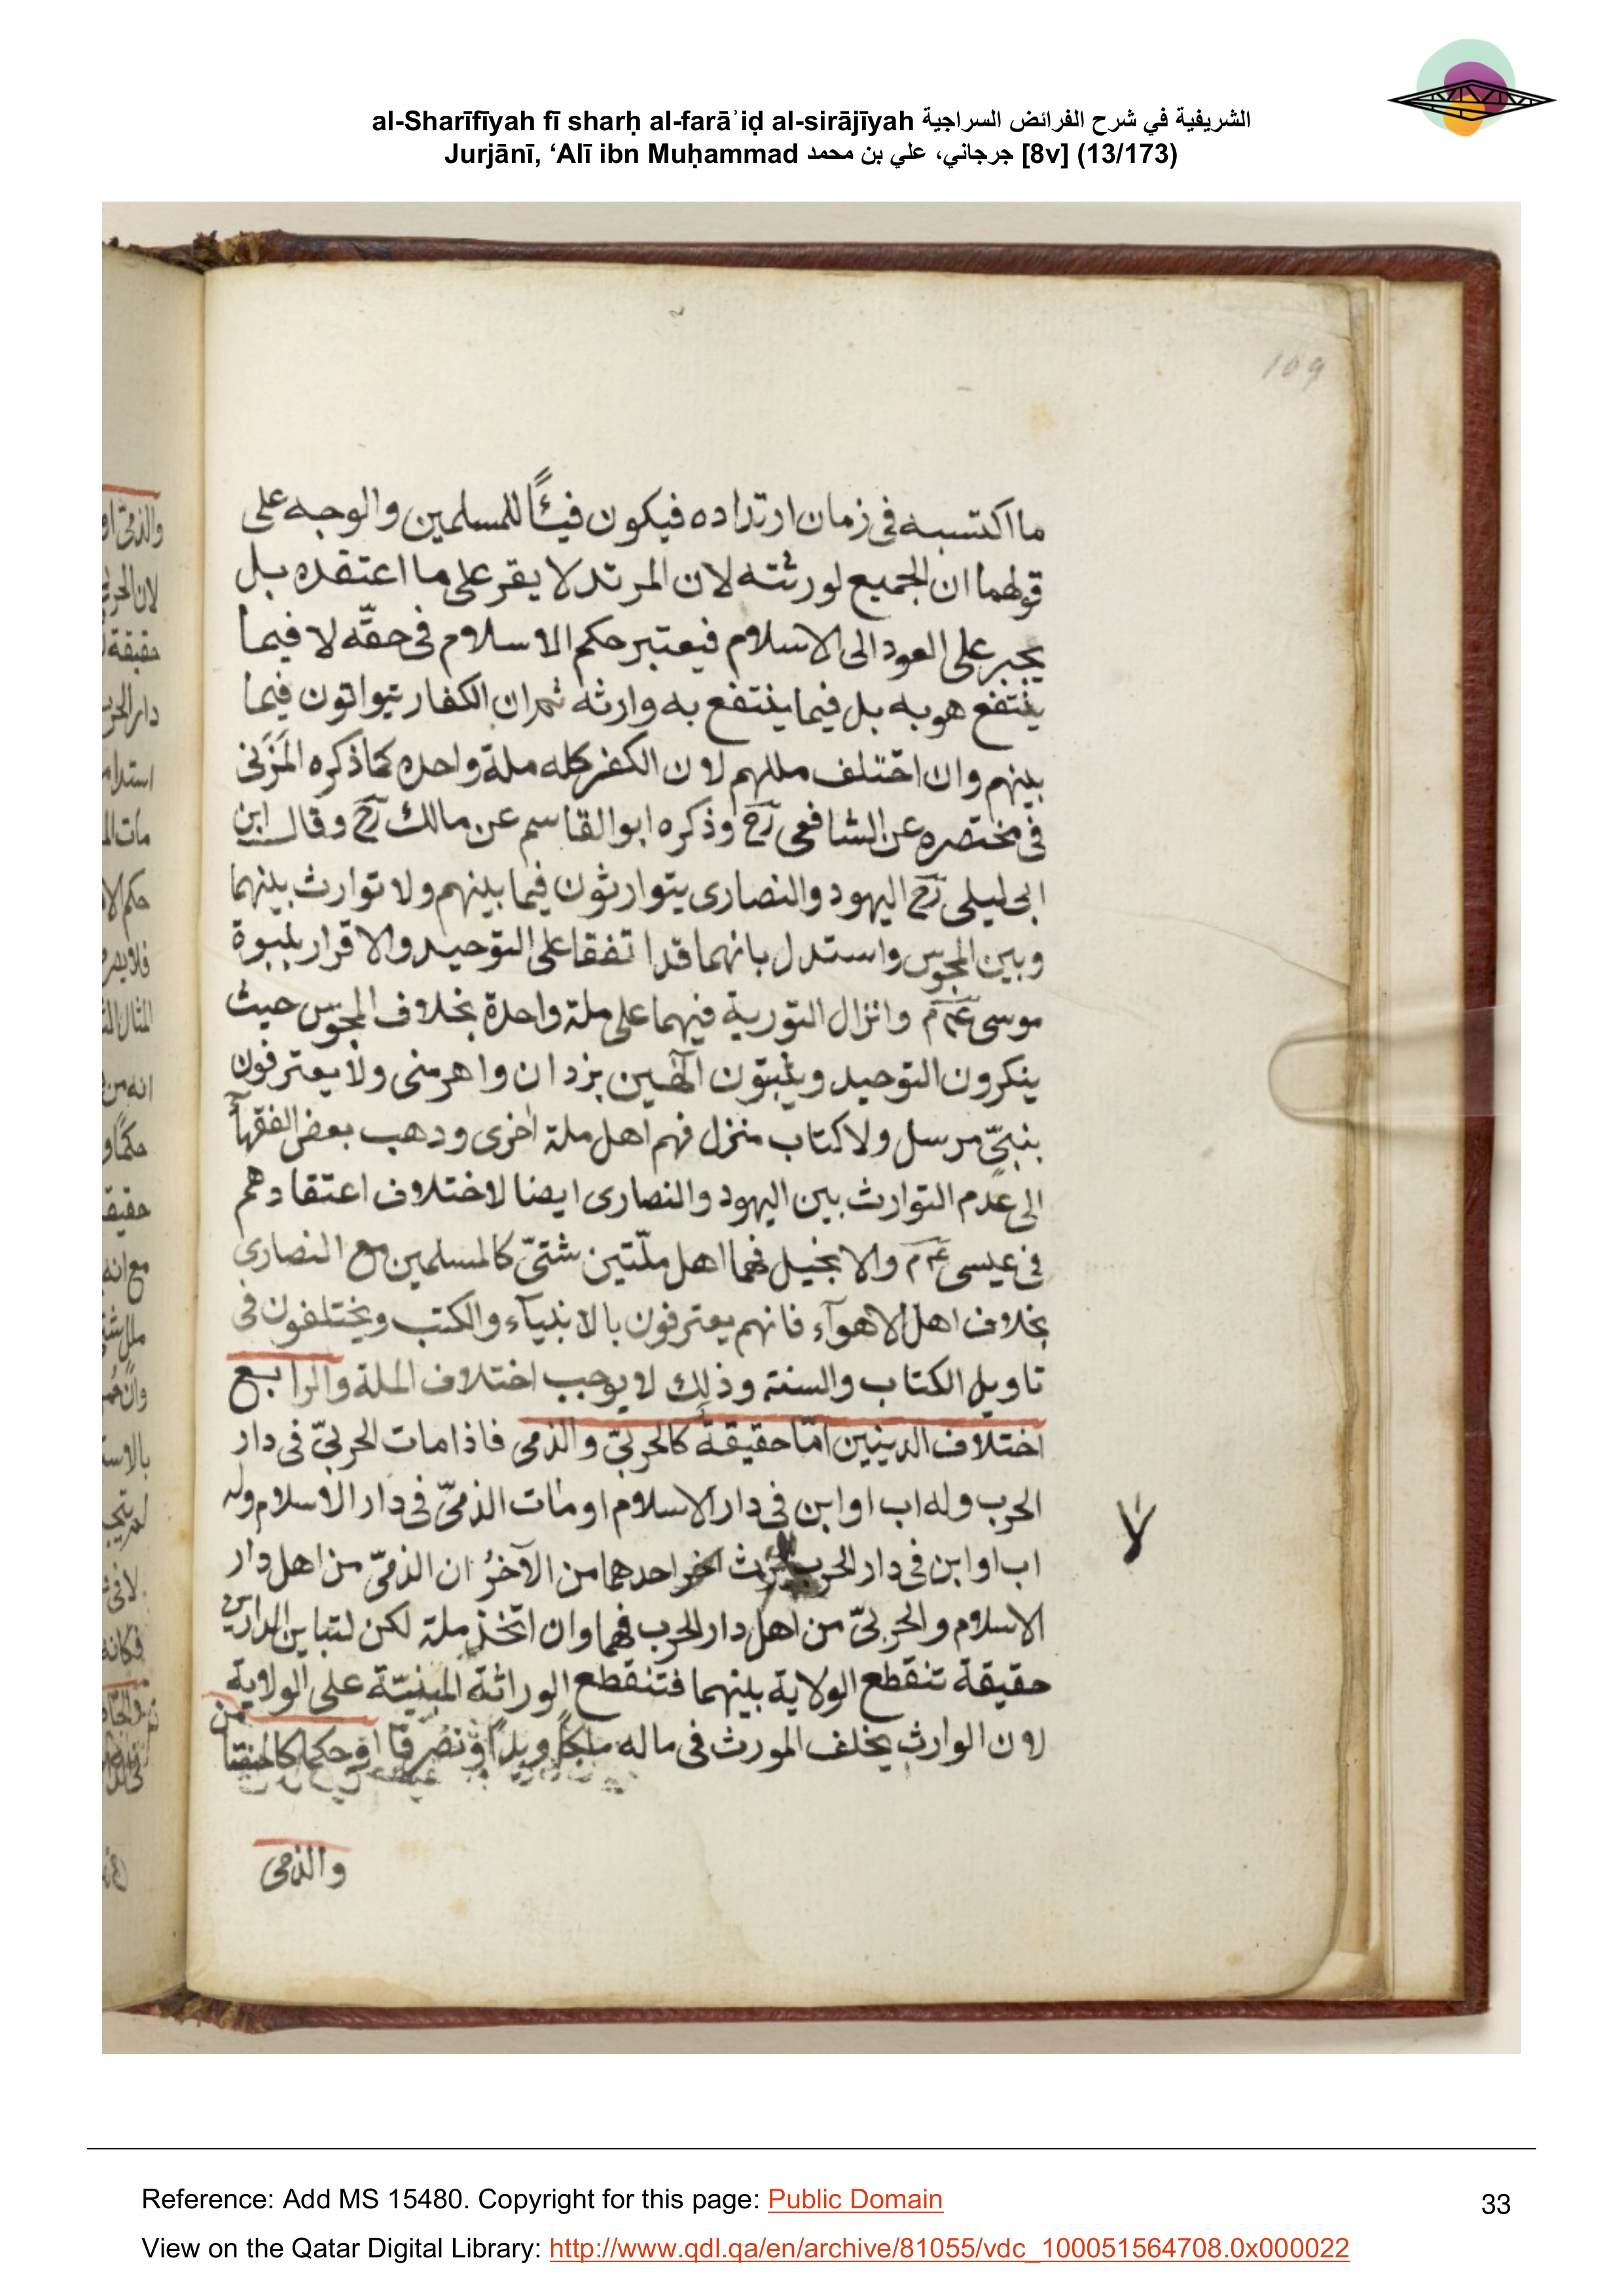 al-Sharīfīyah fī sharḥ al-farāʾiḍ al-sirājīyah الشريفية في شرح الفرائض السراجية
Jurjānī, ‘Alī ibn Muḥammad جرجاني، علي بن محمد [8v] (13/173)
109
ما اكتسبه فى زمان ارتداده فيكون فيئًا للمسلمين والوجه على
قولهما ان الجميع لورثته لان المرتد لا يقر على ما اعتقده بل
يجبر على العود الى الاسلام فيعتبر حكم الاسلام فى حقّه لا فيما
ينتفع هو به بل فيما ينتفع به وارثه ثم ان الكفار يتواتون فيما
بينهم وان اختلف مللهم لان الكفر كله ملة واحده كما ذكره المَزَنى
فى مختصره عن الشافعى رح وذكره ابو القاسم عن مالك رح وقال ابن
ابى ليلى رح اليهود والنصارى يتوارثون فيما بينهم ولا توارث بينهما
وبين المجوس واستدل بانهما قد اتفقا على التوحيد والاقرار بنبوة
موسى عم وانزال التورية فيهما على ملة واحدة بخلاف المجوس حيث
ينكرون التوحيد ويثبتون الهين يزدان واهرمنى ولا يعترفون
بنبىّ مرسل ولا كتاب منزل فهم اهل ملة اخرى ودهب بعض الفقهآ
الى عدم التوارث بين اليهود والنصارى ايضا لاختلاف اعتقادهم
فى عيسى عم والانجيل فهما اهل ملّتين شتىّ كالمسلمين مع النصارى
بخلاف اهل الاهوآء فانهم يعترفون بالانبيآء والكتب ويختلفون فى
تاويل الكتاب والسنة وذلك لا يوجب اختلاف الملة والرابع
اختلاف الدينين امّا حقيقةً كالحربىّ والذمى فاذا مات الحربىّ فى دار
الحرب وله اب او ابن فى دار الاسلام او مات الذمىّ فى دار الاسلام وله
اب او ابن فى دار الحرب احدهما من الآخر ان الذمىّ من اهل دار
الاسلام والحربىّ من اهل دار الحرب فهما وان اتخذ ملة لكن لتباين الدارين
حقيقة تنقطع الولاية بينهما فتنقطع الوراثة المبنيّة على الولاية
لان الوارث يخلف المورث فى ماله ملكًا ويدًا وتصرفًا او حكما كالمستامن
والذمى
لا
Reference: Add MS 15480. Copyright for this page: Public Domain
33
View on the Qatar Digital Library: http://www.qdl.qa/en/archive/81055/vdc_100051564708.0x000022